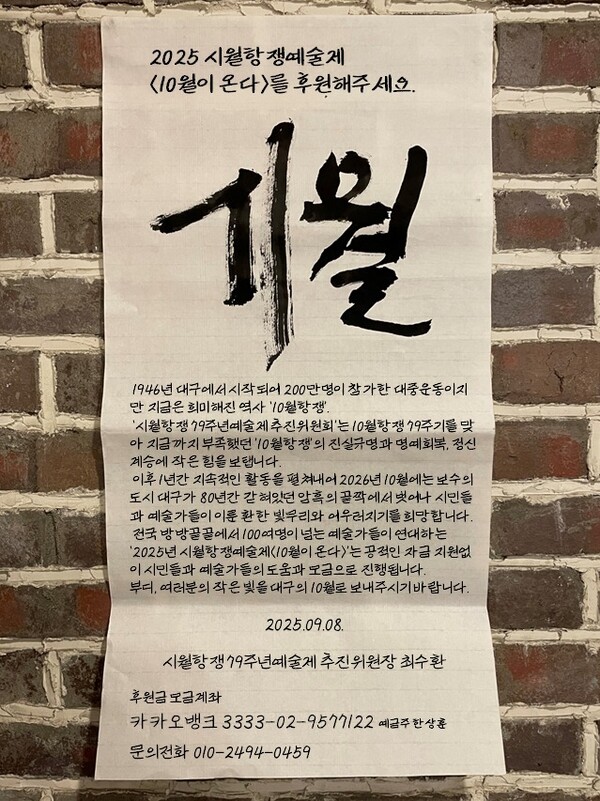 2025 시월항쟁예술제
<10월이 온다>를 후원해주세요.
시월
1946년 대구에서 시작되어 200만명이 참가한 대중운동이지
만 지금은 희미해진 역사 '10월항쟁'.
'시월항쟁 79주년예술제 추진위원회'는 10월항쟁 79주기를 맞
아 지금까지 부족했던 '10월항쟁'의 진실규명과 명예회복, 정신
계승에 작은 힘을 보탭니다.
이후 1년간 지속적인 활동을 펼쳐내어 2026년 10월에는 보수의
도시 대구가 80년간 갇혀있던 암흑의 끝짝에서 벗어나 시민들
과 예술가들이 이룬 환한 빛무리와 어우러지기를 희망합니다.
전국 방방곡곡에서 100여명이 넘는 예술가들이 연대하는
'2025년 시월항쟁예술제<10월이 온다>'는 공적인 자금 지원없
이 시민들과 예술가들의 도움과 모금으로 진행됩니다.
부디, 여러분의 작은 빛을 대구의 10월로 보내주시기 바랍니다.
2025.09.08.
시월항쟁79주년예술제 추진위원장 최수환
후원금 모금계좌
카카오뱅크 3333-02-9577122 예금주 한상훈
문의전화 010-2494-0459